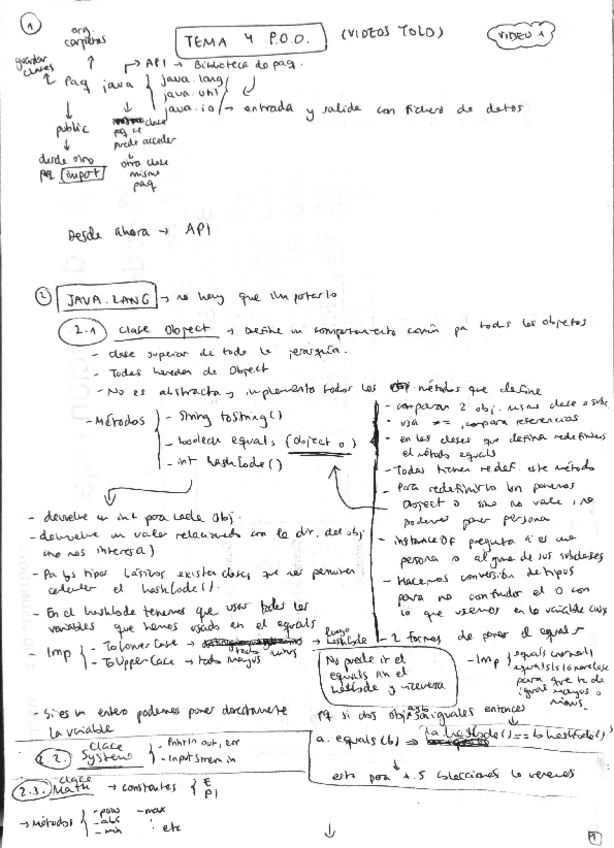 1
TEMA 4 P.O.O. (VIDEOS YOLO)
VIDEO 1
org. carpetas
guardar clases
Paq java → API → Biblioteca de paq.
java.lang
java.util
java.io → entrada y salida con fichero de datos
public
desde otro
paq import
clase
puede acceder
otra clase
mismo
paq
Desde ahora → API
2 JAVA.LANG → no hay que importarlo
2.1 clase Object → Define un comportamiento común pa todos los objetos
- clase superior de toda la jerarquía.
- Todas heredan de Object
- No es abstracta y implementa todos los métodos que define
- Métodos
- String toString()
- boolean equals (Object o)
- int hashCode()
- comparar 2 obj. misma clase o subc
- usa ==, compara referencias
- en las clases que defina redefinimos
el método equals
- Todas tienen redef. este método
- Para redefinirlo ponemos
Object o sino no vale, no
podemos poner persona
- instance OF pregunta si es una
persona o alguna de sus subclases
- Hacemos conversión de tipos
para no confundir el o con
lo que usemos en la variable
- 2 formas de poner el equals
- Imp
equals (normal)
equalsIgnoreCase
para que te de
igual mayus o
minus.
- devuelve un int para cada obj.
- devuelve un valor relacionado con la dir. del obj
(no nos interesa)
- Pa los tipos básicos existen clases que nos permiten
calcular el hashCode().
- En el hashCode tenemos que usar todas las
variables que hemos usado en el equals
- Imp
- ToLowerCase → todo minus
- ToUpperCase → todo mayus
luego
hashCode
No puede ir el
equals sin el
hashCode y viceversa
- Si es un entero podemos poner directamente
la variable
pq si dos obj a y b son iguales entonces
a.equals(b) → a.hashCode() == b.hashCode()
esto para t.5 colecciones lo veremos
2.2. clase System
- Println out, err
- InputStream in
2.3. clase Math → constantes
E
PI
→ Métodos
- pow
- abs
- min
- max
: etc
1